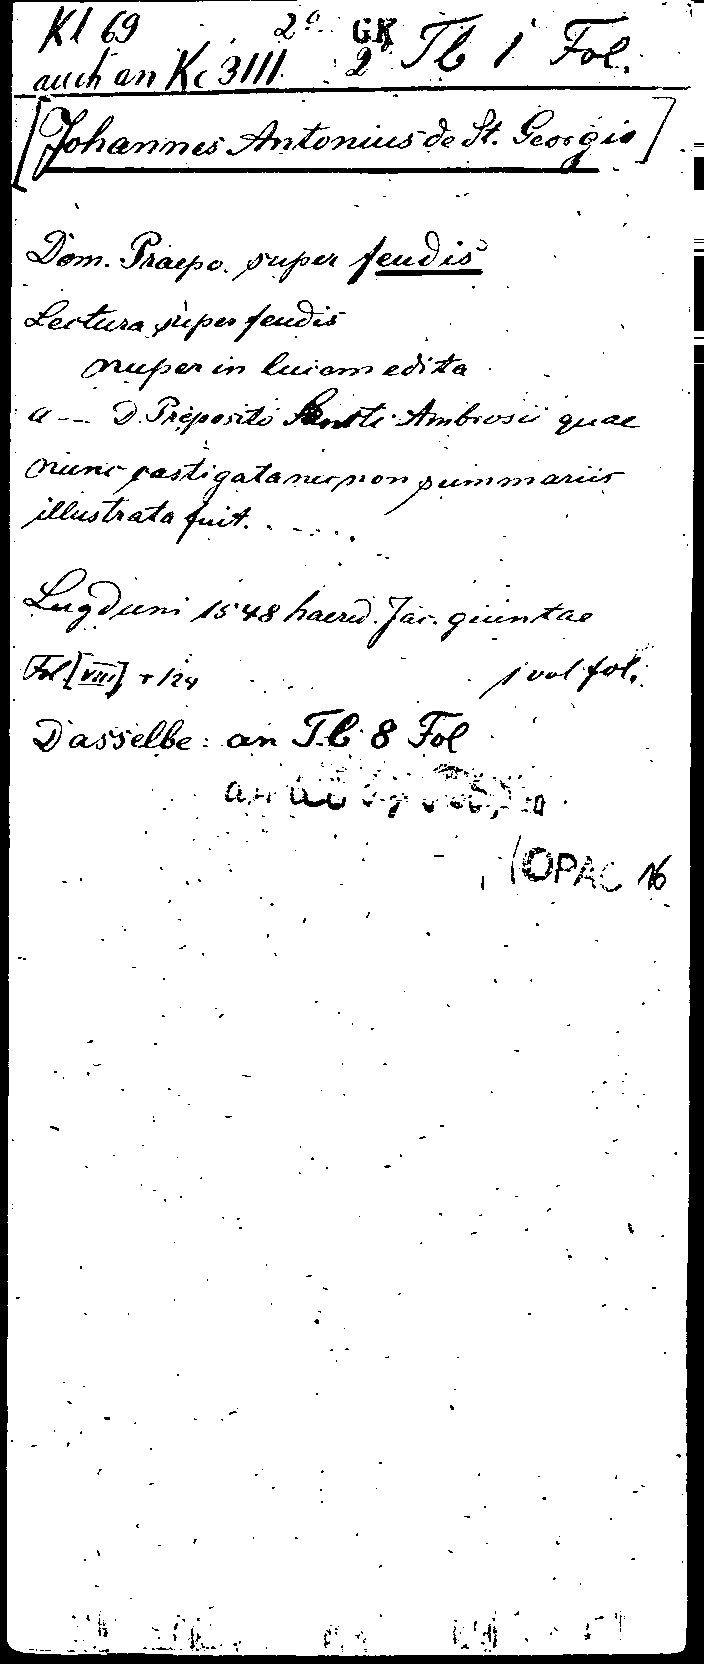 Kl 69 2° GK Tb 1 Fol.
auch an Kc 3111 2
[Johannes Antonius de St. Georgio]
Dom. Praepo. super feudis
Lectura super feudis
nuper in lucem edita
a -- D. Preposito Sancti Ambrosii quae
nunc castigata nec non summariis
illustrata fuit. . . . .
Lugduni 1548 haered. Jac. giuntae
Fol [VIII] + 124 1 vol fol.
Dasselbe: an Tb 8 Fol
OPAC 16